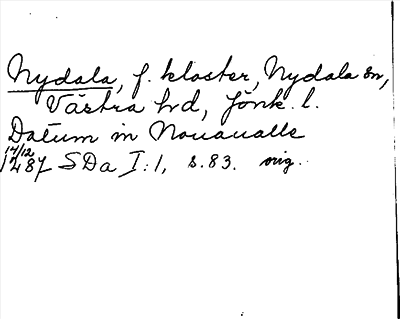 Nydala, f. kloster, Nydala sn,
Västra hd, Jönk. l.
Datum in Nouaualle
14/12
1287 SDa I:1, s.83. orig.